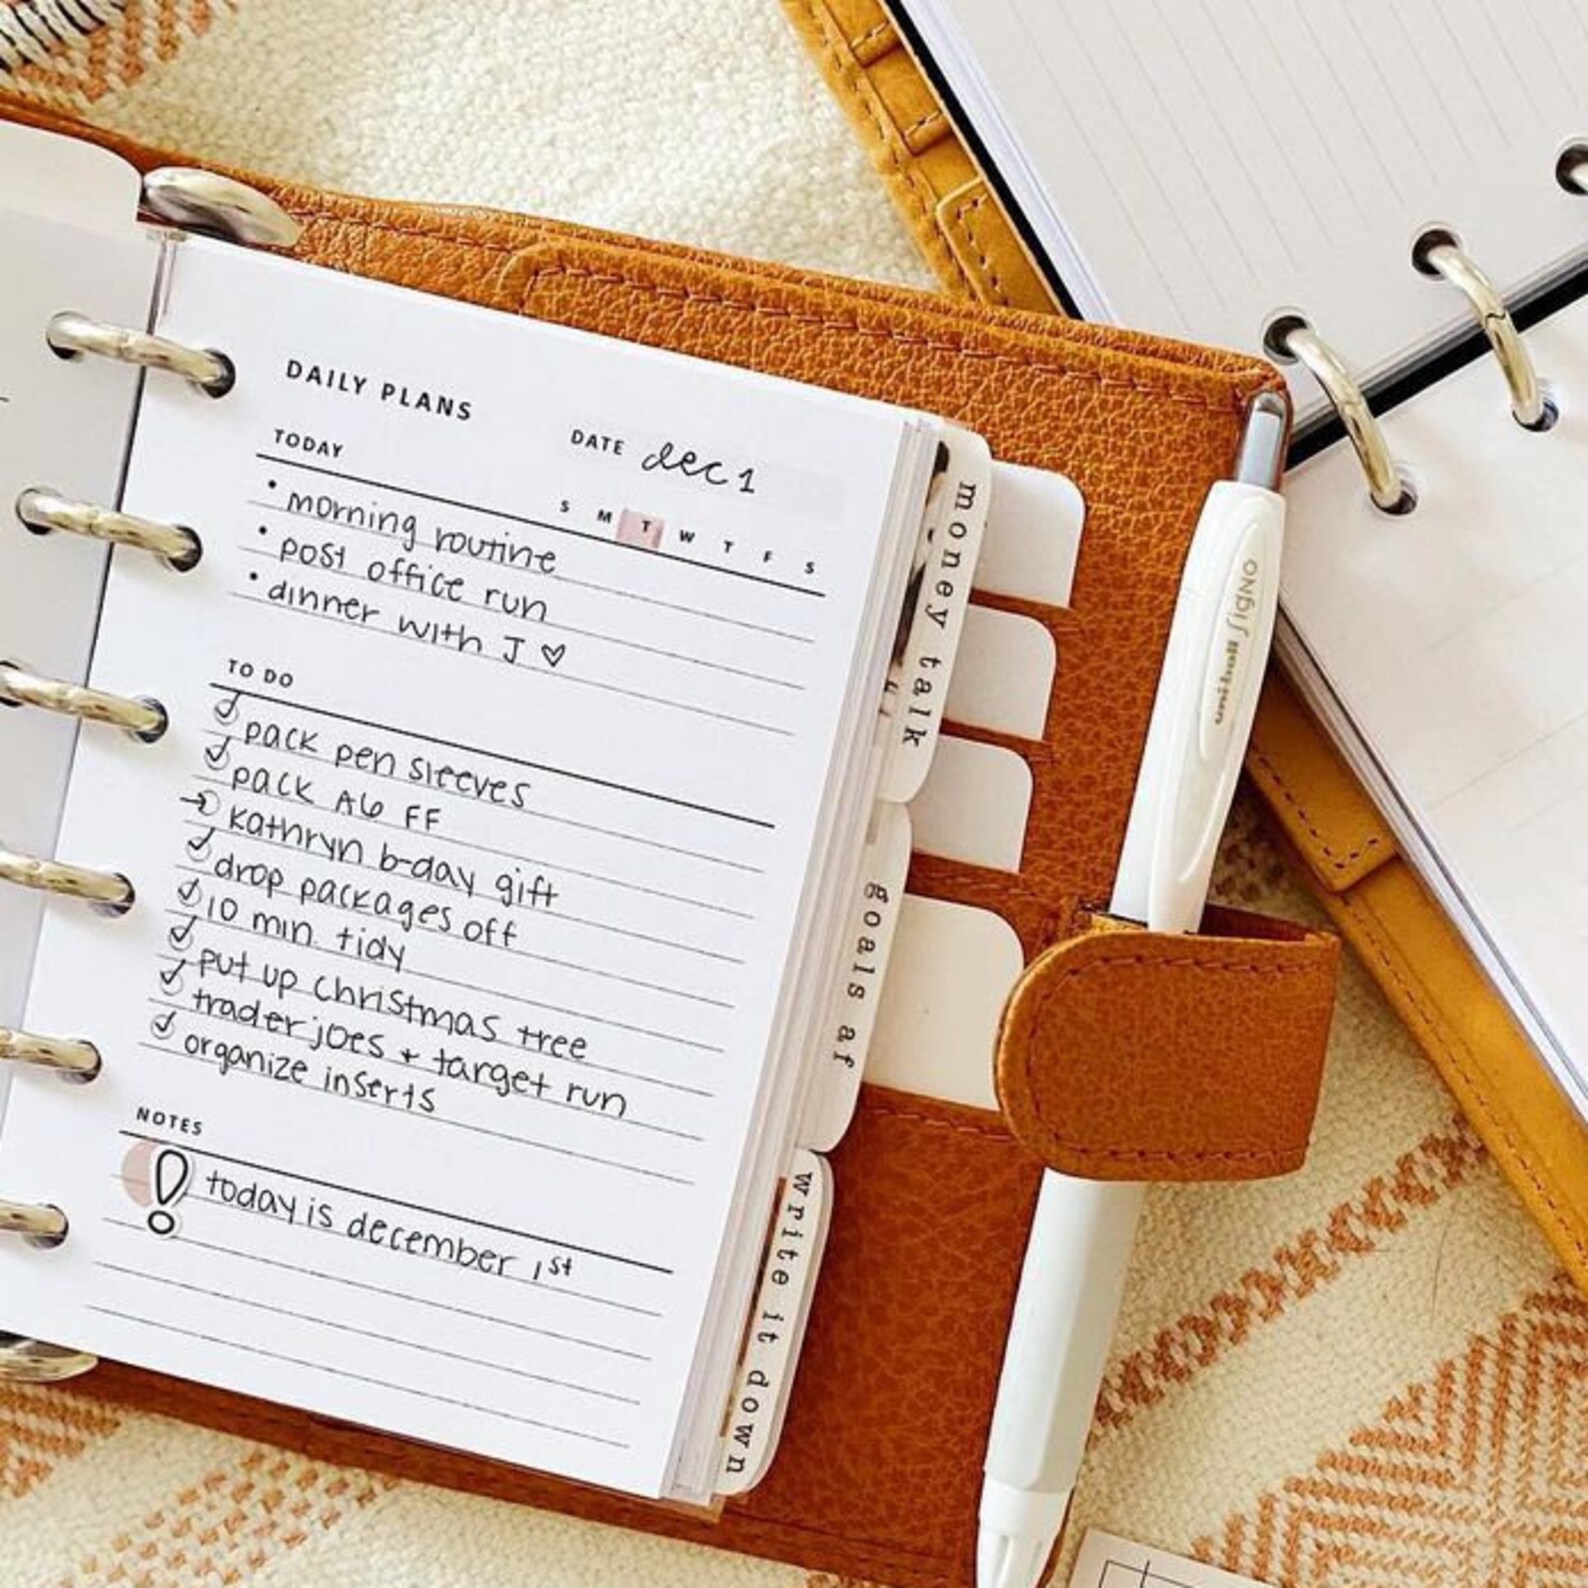 DAILY PLANS
DATE dec 1
TODAY
S M T W T F S
• morning routine
• post office run
• dinner with J ♡
TO DO
pack pen sleeves
pack A6 FF
kathryn b-day gift
drop packages off
10 min. tidy
put up christmas tree
trader joes + target run
organize inserts
NOTES
! today is december 1st
money talk
goals af
write it down
uni-ball Signo